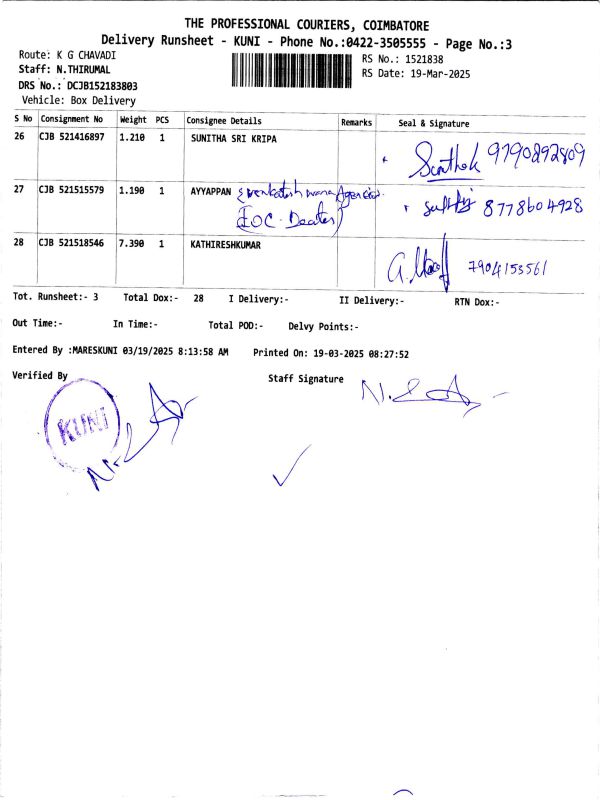 THE PROFESSIONAL COURIERS, COIMBATORE
Delivery Runsheet - KUNI - Phone No.:0422-3505555 - Page No.:3
Route: K G CHAVADI
RS No.: 1521838
Staff: N.THIRUMAL
RS Date: 19-Mar-2025
DRS No.: DCJB152183803
Vehicle: Box Delivery
S No Consignment No Weight PCS Consignee Details Remarks Seal & Signature
26 CJB 521416897 1.210 1 SUNITHA SRI KRIPA
9790892809
27 CJB 521515579 1.190 1 AYYAPPAN
8778604928
28 CJB 521518546 7.390 1 KATHIRESHKUMAR
7904153561
Tot. Runsheet:- 3 Total Dox:- 28 I Delivery:- II Delivery:- RTN Dox:-
Out Time:- In Time:- Total POD:- Delvy Points:-
Entered By :MARESKUNI 03/19/2025 8:13:58 AM Printed On: 19-03-2025 08:27:52
Verified By Staff Signature
KUNI